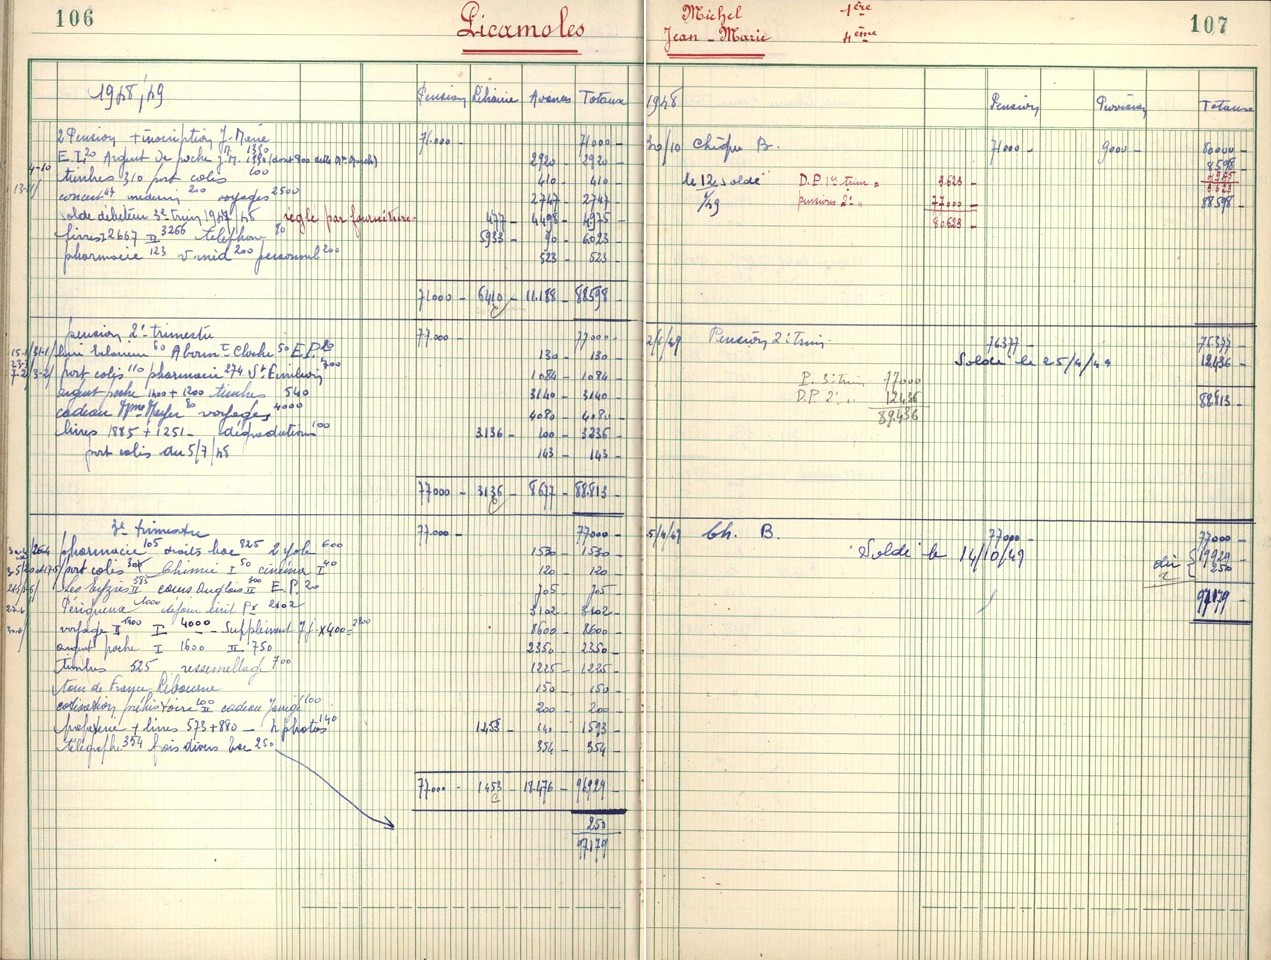 106
Picamoles
Michel 1ère
Jean-Marie 4ème
107
1948/49 Pension Librairie Avances Totaux
1948 Pension Provision Totaux
2 Pension + inscription J. Marie 71.000 - 71000 -
2920 - 2920 -
4-10 timbres 310 port colis 100 410 - 410 -
médecin 200 voyages 2500 2747 - 2747 -
solde débiteur 3e trim 1947/48 réglé par fourniture 477 - 4498 - 4975 -
livres 2667 II 3266 téléphone 90 5933 - 90 - 6023 -
pharmacie 123 v. méd 200 personnel 200 523 - 523 -
71000 - 6410 - 11.188 - 88598 -
30/10 Chèque B. 71000 - 9000 - 80000 -
8598
le 12 soldé D.P. 1er trim = 3.623 -
1/49 pensions 2e 77000 - 88598 -
80623 -
pension 2e trimestre 77.000 - 77000 -
130 - 130 -
port colis 110 pharmacie 274 St Emilion 700 1084 - 1084 -
argent poche 1400 + 1200 timbres 540 3140 - 3140 -
cadeau Mme Meyer 80 voyages 4000 4080 - 4080 -
livres 1885 + 1251 - dégradations 100 3.136 - 100 - 3236 -
port colis du 5/7/48 143 - 143 -
77000 - 3136 - 8677 - 88.813 -
2/1/49 Pension 2e Trim. 76377 - 76377 -
Soldé le 25/4/49 12.436 -
P. 3e trim 77000
D.P. 2e 12436
89.436
88813 -
3e trimestre 77.000 - 77000 -
pharmacie 105 droits bac 825 600 1530 - 1530 -
port colis Chimie I 50 cinéma I 40 120 - 120 -
Les Eyzies II 585 cours Anglais II E.P. 20
Périgueux 1000 2102 3102 - 3102 -
voyage II I 4000 - Supplément 7j x 400 = 2800 8600 - 8600 -
argent poche I 1600 II 750 2350 - 2350 -
timbres 525 ressemellage 700 1225 - 1225 -
tour de France Libourne 150 - 150 -
cotisation préhistoire 100 II cadeau 100 200 - 200 -
papeterie + livres 573 + 880 - 2 photos 140 1453 - 140 - 1593 -
télégraphe 354 frais divers bac 250 354 - 354 -
77.000 - 1453 - 18.476 - 96929 -
250
97179
5/4/49 Ch. B. 77000 - 77000 -
Soldé le 14/10/49 19929
dû 250
97179